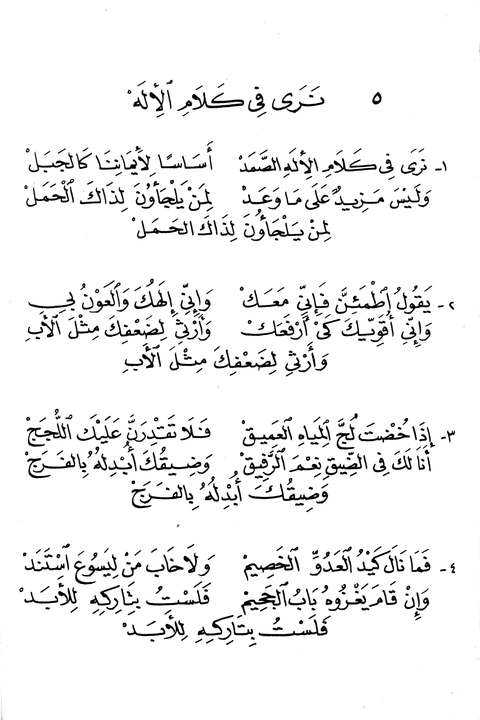 ٥ نَرَى فِي كَلَامِ الْإِلَهْ
١- نَرَى فِي كَلَامِ الْإِلَهِ الصَّمَدْ أَسَاسًا لِأَيْمَانِنَا كَالجَبَلْ
وَلَيْسَ مَزِيدٌ عَلَى مَا وَعَدْ لِمَنْ يَلْجَأُونَ لِذَاكَ الْحَمَلْ
لِمَنْ يَلْجَأُونَ لِذَاكَ الحَمَلْ
٢- يَقُولُ اطْمَئِنَّ فَإِنِّي مَعَكْ وَإِنِّي إِلَهُكَ وَالْعَوْنُ بِي
وَإِنِّي أُقَوِّيكَ كَيْ أَرْفَعَكْ وَأَرْثِي لِضَعْفِكَ مِثْلَ الْأَبِ
وَأَرْثِي لِضَعْفِكَ مِثْلَ الْأَبِ
٣- إِذَا خُضْتَ لُجَّ الْمِيَاهِ الْعَمِيقْ فَلَا تَقْدِرَنَّ عَلَيْكَ اللُّجَجْ
أَنَا لَكَ فِي الضِّيقِ نِعْمَ الرَّفِيقْ وَضِيقُكَ أُبْدِلُهُ بِالفَرَجْ
وَضِيقُكَ أُبْدِلُهُ بِالفَرَجْ
٤- فَمَا نَالَ كَيْدُ الْعَدُوِّ الْخَصِيمْ وَلَا خَابَ مَنْ لِيَسُوعَ اسْتَنَدْ
وَإِنْ قَامَ يَغْزُوهُ بَابُ الْجَحِيمْ فَلَسْتُ بِتَارِكِهِ لِلْأَبَدْ
فَلَسْتُ بِتَارِكِهِ لِلْأَبَدْ